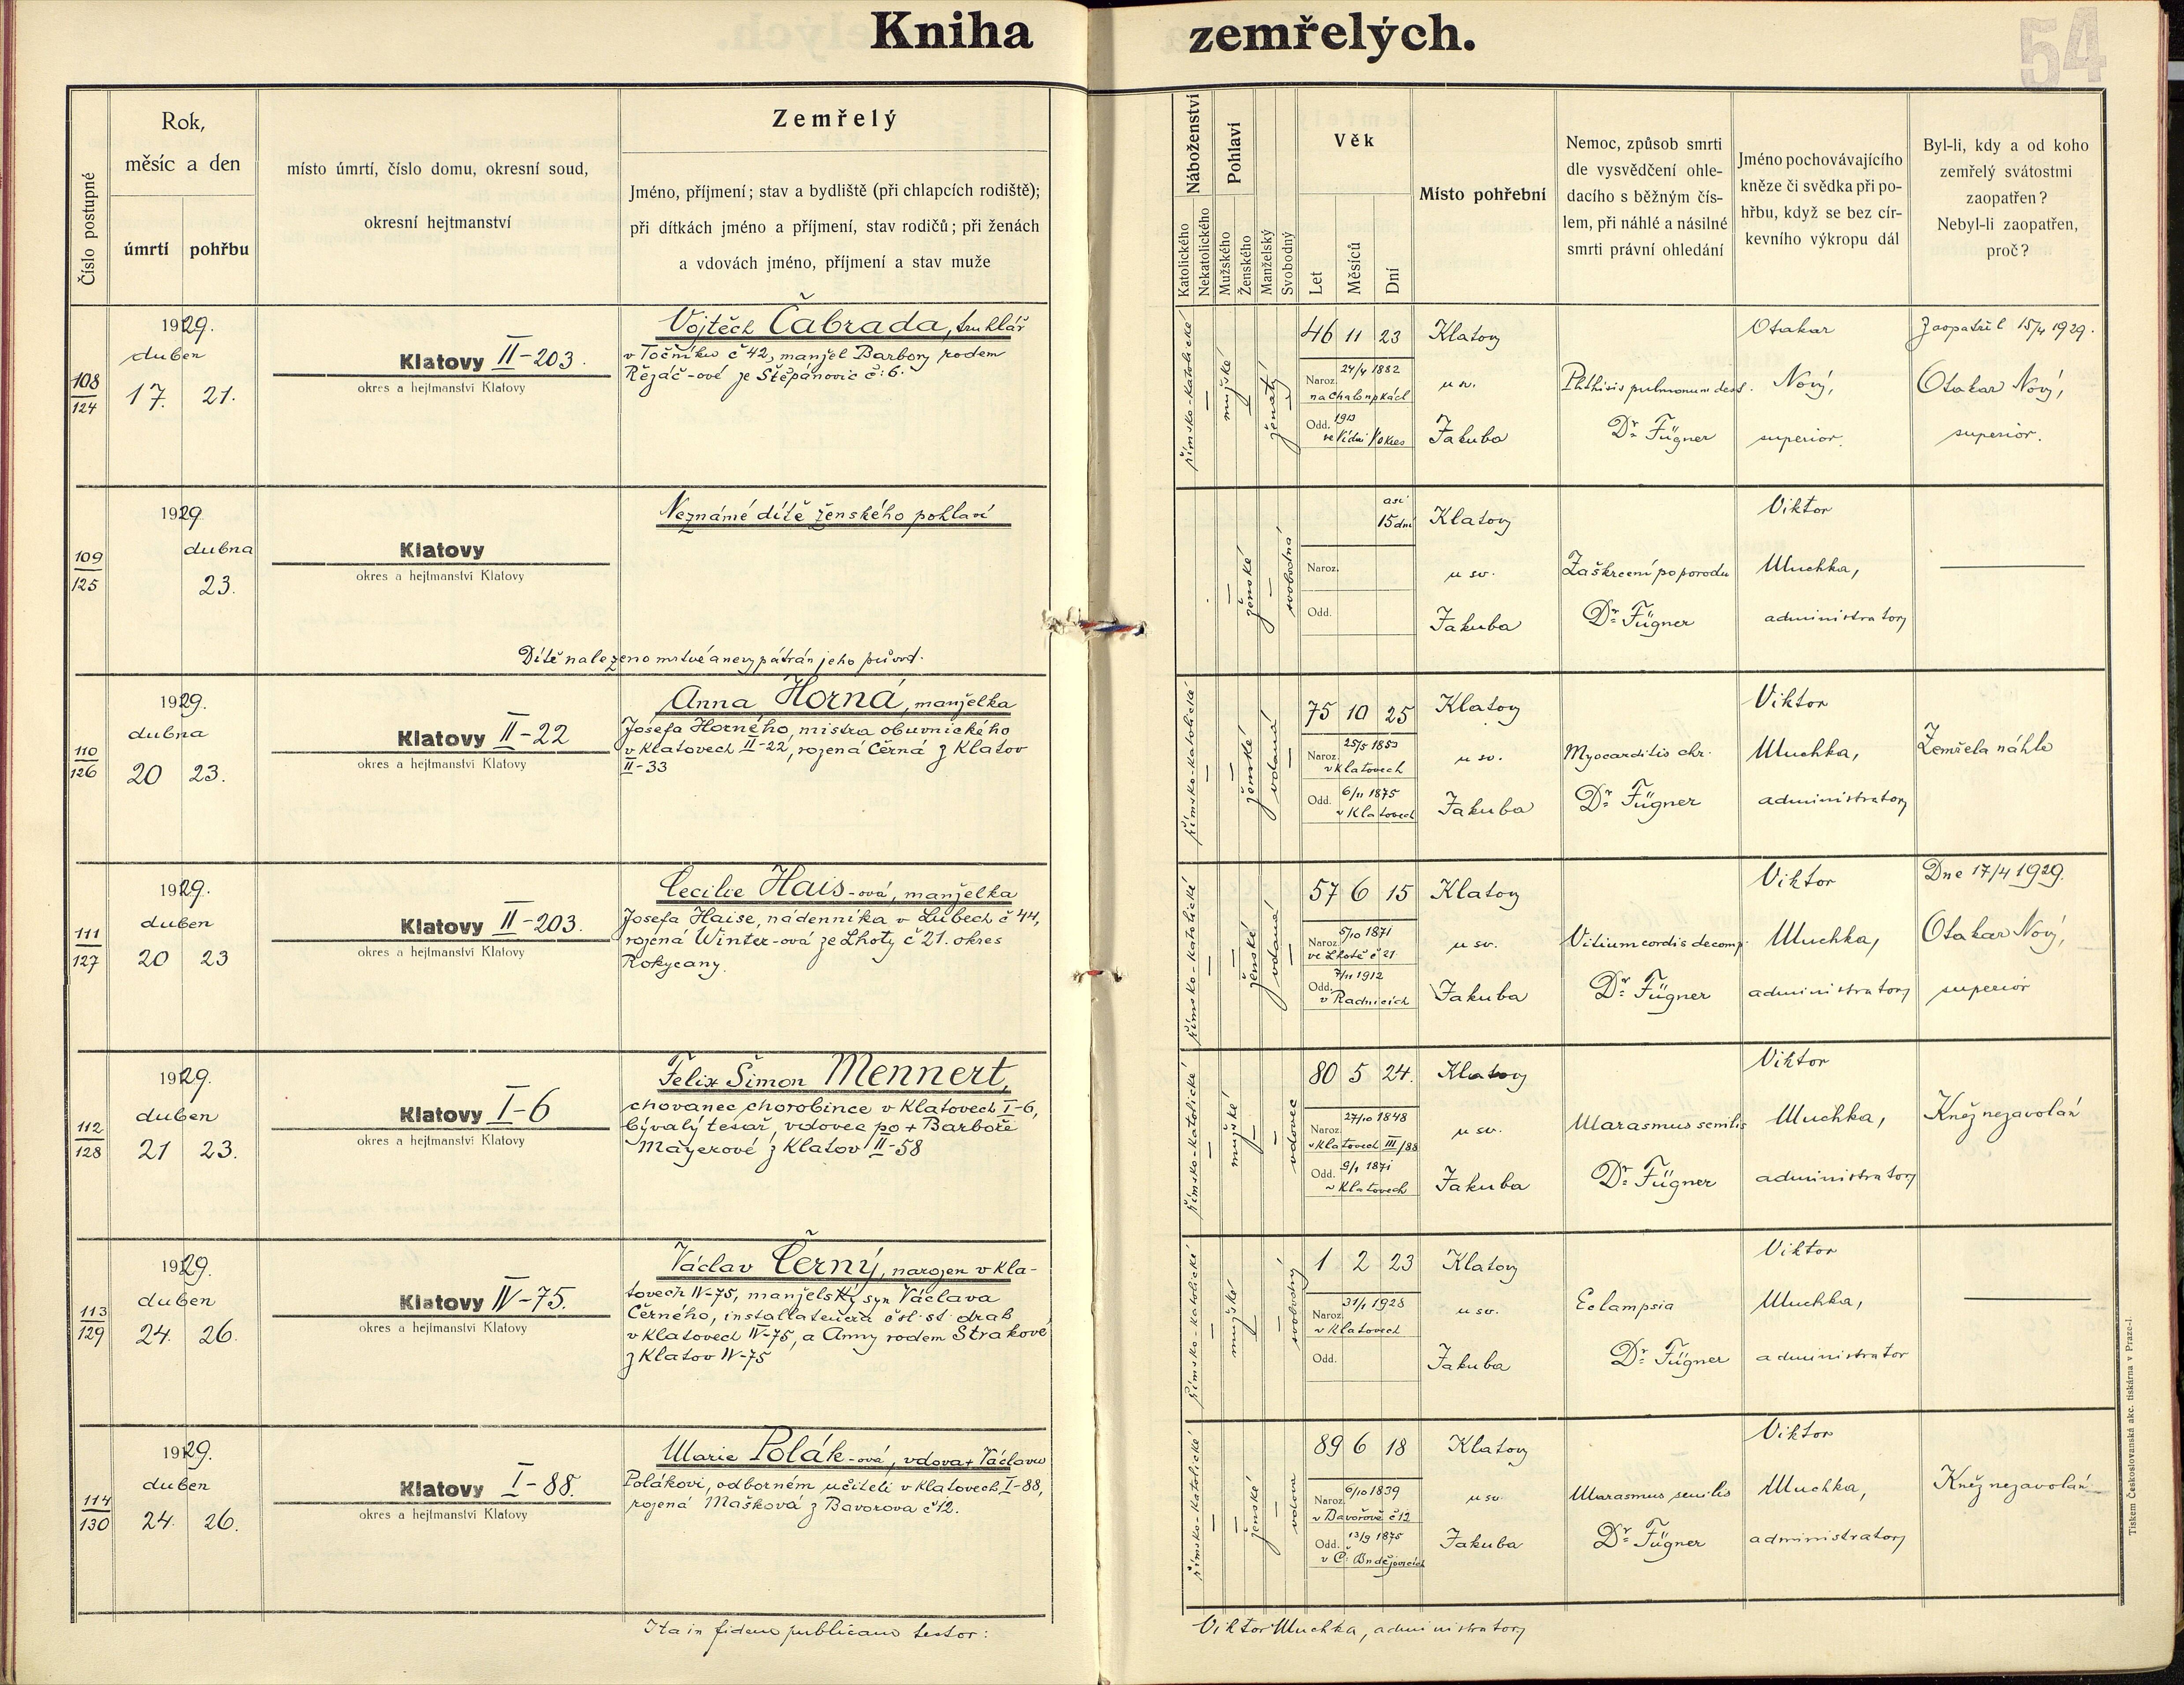 Kniha zemřelých.
54
Číslo postupné
Rok,
měsíc a den
úmrtí
pohřbu
místo úmrtí, číslo domu, okresní soud,
okresní hejtmanství
Zemřelý
Jméno, příjmení; stav a bydliště (při chlapcích rodiště);
při dítkách jméno a příjmení, stav rodičů; při ženách
a vdovách jméno, příjmení a stav muže
Náboženství
Katolického
Nekatolického
Pohlaví
Mužského
Ženského
Manželský
Svobodný
Věk
Let
Měsíců
Dní
Místo pohřební
Nemoc, způsob smrti
dle vysvědčení ohle-
dacího s běžným čís-
lem, při náhlé a násilné
smrti právní ohledání
Jméno pochovávajícího
kněze či svědka při po-
hřbu, když se bez cír-
kevního výkropu dál
Byl-li, kdy a od koho
zemřelý svátostmi
zaopatřen?
Nebyl-li zaopatřen,
proč?
108
124
1929.
duben
17. 21.
Klatovy II-203.
okres a hejtmanství Klatovy
Vojtěch Čabrada, truhlář
v Točníku č 42, manžel Barbory rodem
Řezáč-ové ze Štěpánovic č: 6.
římsko-katolické
mužské
ženatý
46 11 23
Naroz. 24/4 1882
na Chalupkách
Odd. 1913
ve Vídni
Klatovy
u sv.
Jakuba
Phthisis pulmonum dest.
Dr. Fügner
Otakar
Nový,
superior.
Zaopatřil 15/4 1929.
Otakar Nový,
superior.
109
125
1929
dubna
23.
Klatovy
okres a hejtmanství Klatovy
Neznámé dítě ženského pohlaví
Dítě nalezeno mrtvé a nevypátrán jeho původ.
ženské
svobodná
asi
15 dní
Naroz.
Odd.
Klatovy
u sv.
Jakuba
Zaškrcení po porodu
Dr. Fügner
Viktor
Muchka,
administrator
110
126
1929.
dubna
20 23.
Klatovy II-22
okres a hejtmanství Klatovy
Anna Horná, manželka
Josefa Horného, mistra obuvnického
v Klatovech II-22, rozená Černá z Klatov
II-33
římsko-katolické
ženské
vdaná
75 10 25
Naroz. 25/5 1853
v Klatovech
Odd. 6/11 1875
v Klatovech
Klatovy
u sv.
Jakuba
Myocarditis chr.
Dr. Fügner
Viktor
Muchka,
administrator
Zemřela náhle
111
127
1929.
duben
20 23
Klatovy II-203.
okres a hejtmanství Klatovy
Cecilie Hais-ová, manželka
Josefa Haise, nádenníka v Lubech č 44,
rozená Winter-ová ze Lhoty č 21. okres
Rokycany.
římsko-katolické
ženské
vdaná
57 6 15
Naroz. 5/10 1871
ve Lhotě č 21
Odd. 7/11 1912
v Radnicích
Klatovy
u sv.
Jakuba
Vitium cordis decomp.
Dr. Fügner
Viktor
Muchka,
administrator
Dne 17/4 1929.
Otakar Nový,
superior
112
128
1929.
duben
21 23.
Klatovy I-6
okres a hejtmanství Klatovy
Felix Šimon Mennert,
chovanec chorobince v Klatovech I-6,
bývalý tesař, vdovec po + Barboře
Mayerové z Klatov II-58
římsko-katolické
mužské
vdovec
80 5 24.
Naroz. 27/10 1848
v Klatovech III/88
Odd. 9/1 1871
v Klatovech
Klatovy
u sv.
Jakuba
Marasmus senilis
Dr. Fügner
Viktor
Muchka,
administrator
Kněz nezavolán
113
129
1929.
duben
24. 26.
Klatovy IV-75.
okres a hejtmanství Klatovy
Václav Černý, narozen v Kla-
tovech IV-75, manželský syn Václava
Černého, installatéura čsl. st. drah
v Klatovech IV-75, a Anny rodem Strakové
z Klatov IV-75
římsko-katolické
mužské
svobodný
1 2 23
Naroz. 31/1 1928
v Klatovech
Odd.
Klatovy
u sv.
Jakuba
Eclampsia
Dr. Fügner
Viktor
Muchka,
administrator
114
130
1929.
duben
24. 26.
Klatovy I-88.
okres a hejtmanství Klatovy
Marie Polák-ová, vdova + Václavu
Polákovi, odborném učiteli v Klatovech I-88,
rozená Mašková z Bavorova č 12.
římsko-katolické
ženské
vdova
89 6 18
Naroz. 6/10 1839
v Bavorově č 12
Odd. 13/9 1875
v Č: Budějovicích
Klatovy
u sv.
Jakuba
Marasmus senilis
Dr. Fügner
Viktor
Muchka,
administrator
Kněz nezavolán
Ita in fidem publicam testor:
Viktor Muchka, administrator
Tiskem Československá akc. tiskárna v Praze-I.